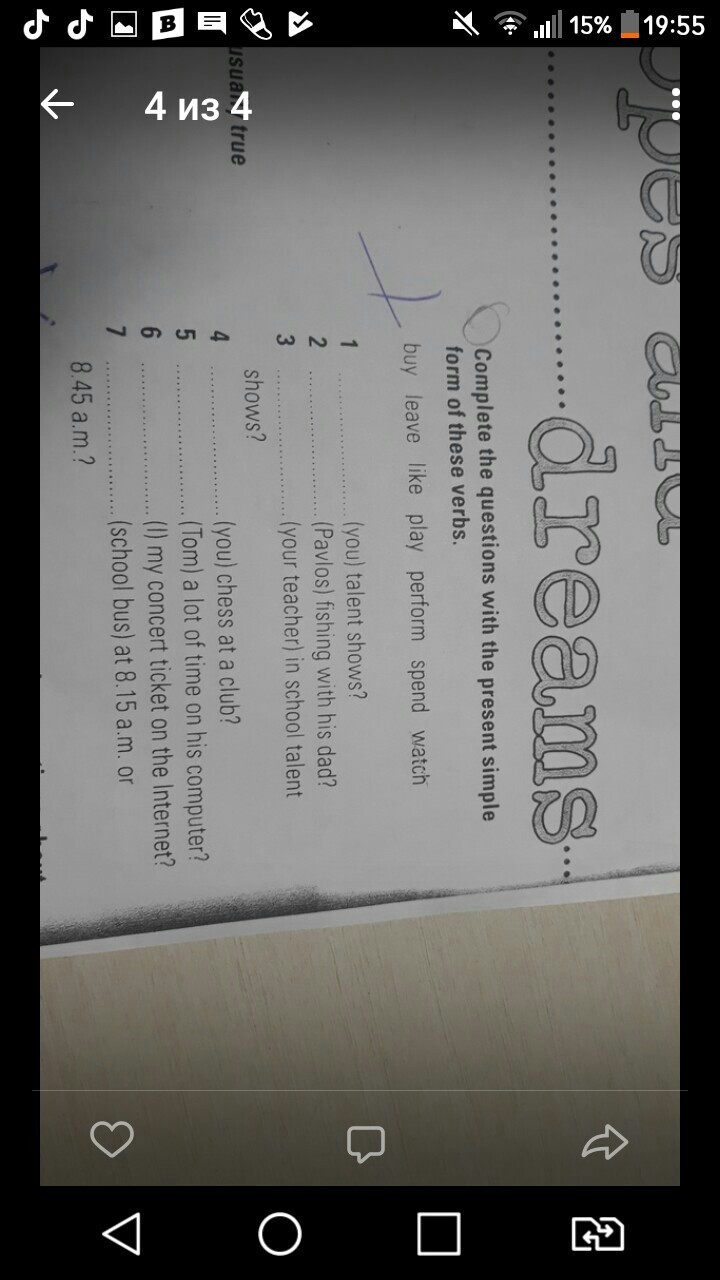 B 15% 19:55
4 из 4
opes and
..............................dreams...
true
Complete the questions with the present simple
form of these verbs.
buy leave like play perform spend watch
1 ........................ (you) talent shows?
2 ........................ (Pavlos) fishing with his dad?
3 ........................ (your teacher) in school talent
shows?
4 ........................ (you) chess at a club?
5 ........................ (Tom) a lot of time on his computer?
6 ........................ (I) my concert ticket on the Internet?
7 ........................ (school bus) at 8.15 a.m. or
8.45 a.m.?